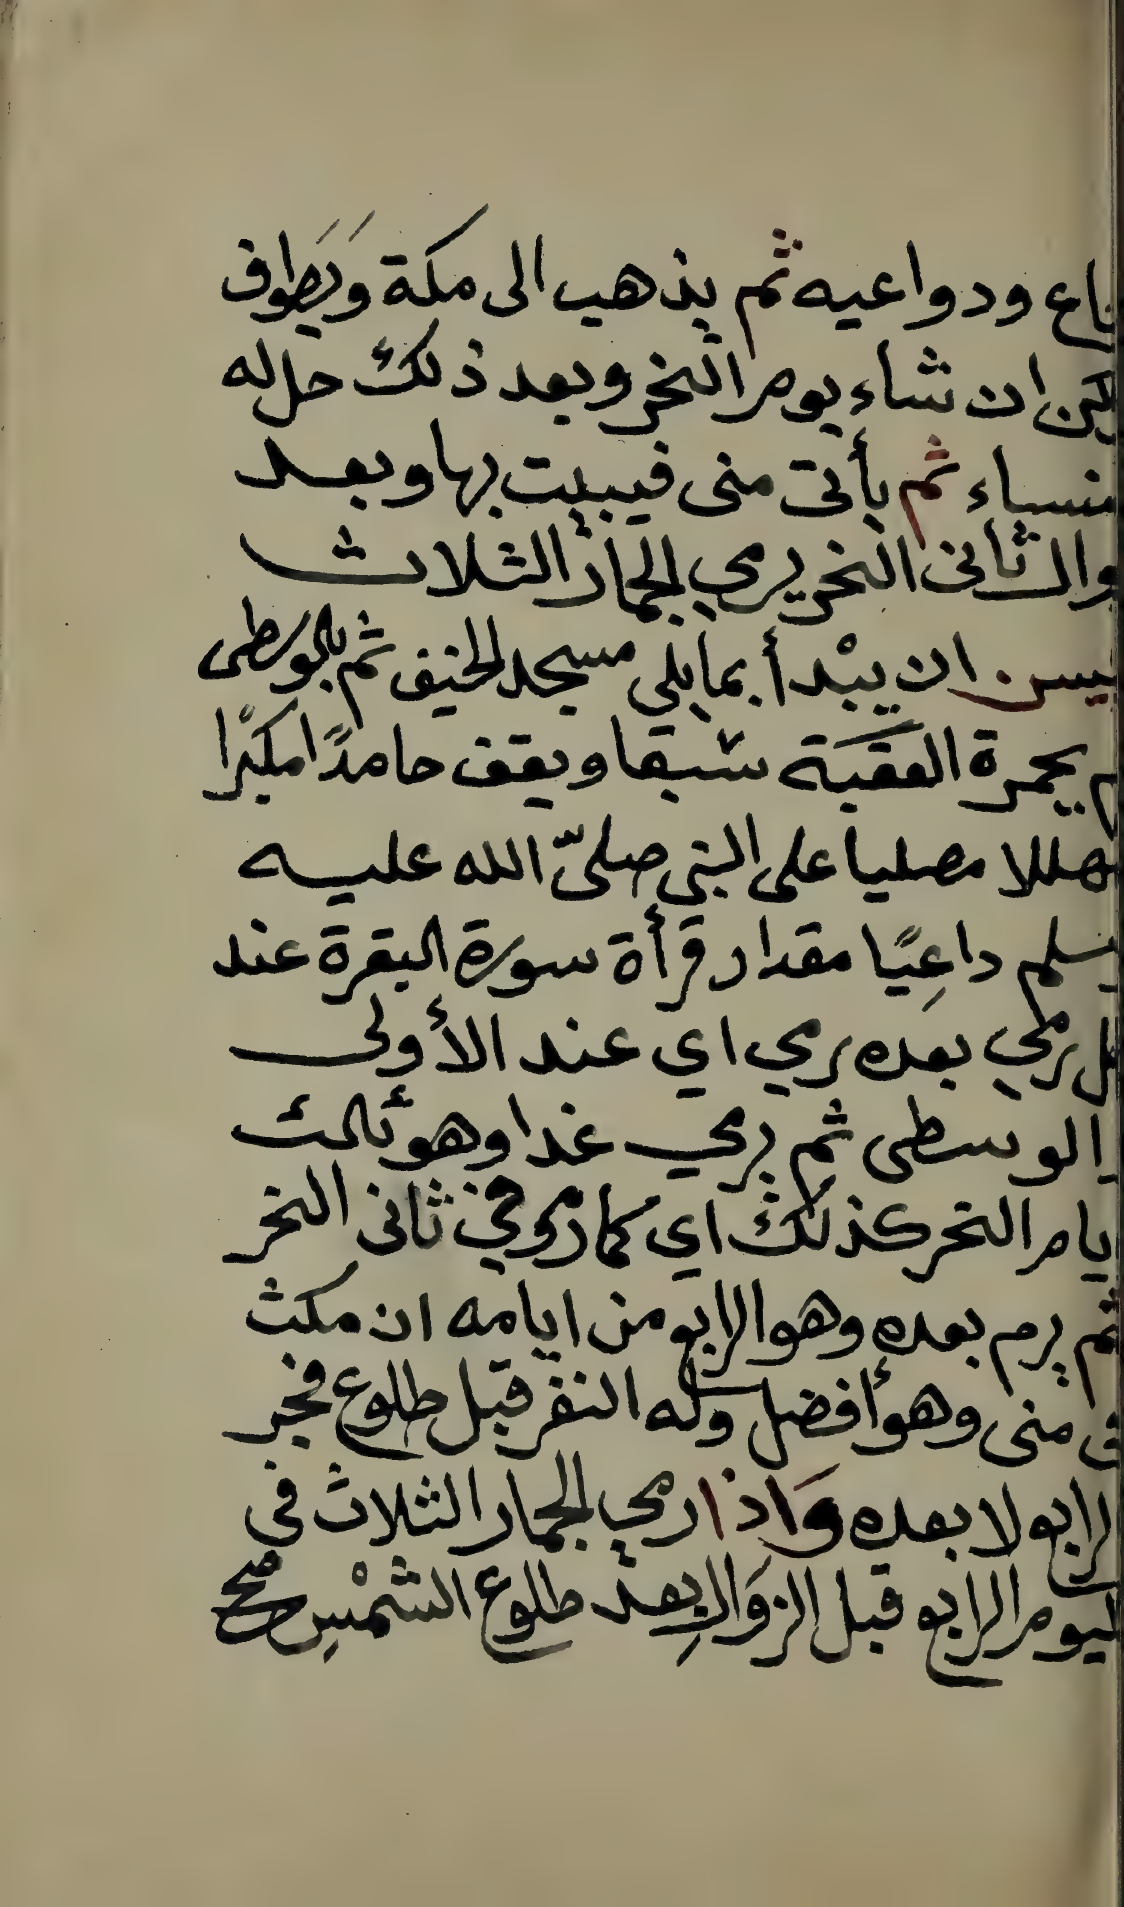 ودواعيه ثم يذهب الى مكة وَيَطواف
ان شاء يوم النحر وبعد ذلك حل له
ثم يأتى منى فيبيت بها وبعد
النحر يرمي الجمار الثلاث
ان يبْدأ بما يلي مسجد الخيف ثم بالوسطى
بجمرة العقبَة سبقا ويقف حامدًا مكبرًا
مصليا على النبى صلىّ الله عليه
داعِيًا مقدار قرأة سورة البقرة عند
رمي بعده رمي اي عند الأولى
الوسطى ثم يرمي غدا وهو ثالث
النحر كذلك اي كما رمى فى ثانى النحر
ثم يرم بعده وهو الرابع من ايامه ان مكث
منى وهو أفضل وله النفر قبل طلوع فجر
الرابع لا بعده وَاذا رمي الجمار الثلاث فى
اليوم الرابع قبل الزوَال بعد طلوع الشمْسِ صح